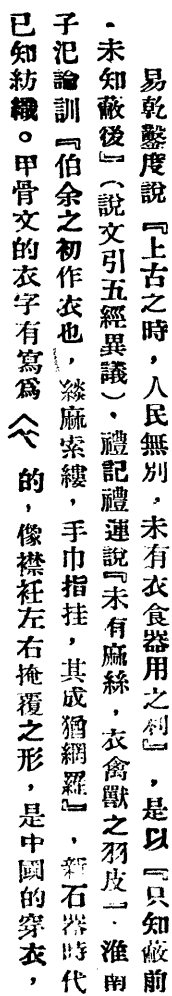 易乾鑿度說『上古之時，人民無別，未有衣食器用之利』，是以『只知蔽前
，未知蔽後』（說文引五經異議）．禮記禮運說『未有麻絲，衣禽獸之羽皮』．淮南
子氾論訓『伯余之初作衣也，緂麻索縷，手巾指挂，其成猶網羅』，新石器時代
已知紡織。甲骨文的衣字有寫爲 的，像襟衽左右掩覆之形，是中國的穿衣，